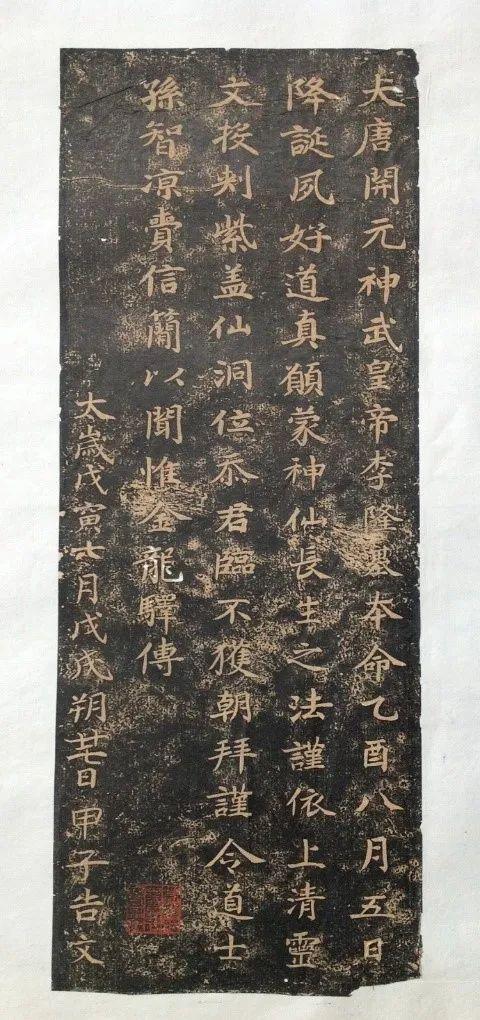 大唐開元神武皇帝李隆基夲命乙酉八月五日
降誕夙好道真願蒙神仙長生之法謹依上清靈
文投刾紫盖仙洞位忝君臨不獲朝拜謹令道士
孫智凉賫信簡以聞惟金龍驛傳
太歲戊寅七月戊戌朔廿七日甲子告文